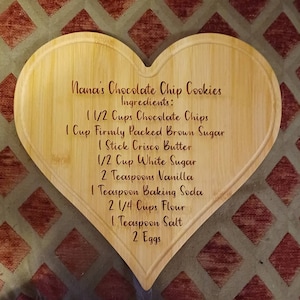 Nana's Chocolate Chip Cookies
Ingredients:
1 1/2 Cups Chocolate Chips
1 Cup Firmly Packed Brown Sugar
1 Stick Crisco Butter
1/2 Cup White Sugar
2 Teaspoons Vanilla
1 Teaspoon Baking Soda
2 1/4 Cups Flour
1 Teaspoon Salt
2 Eggs